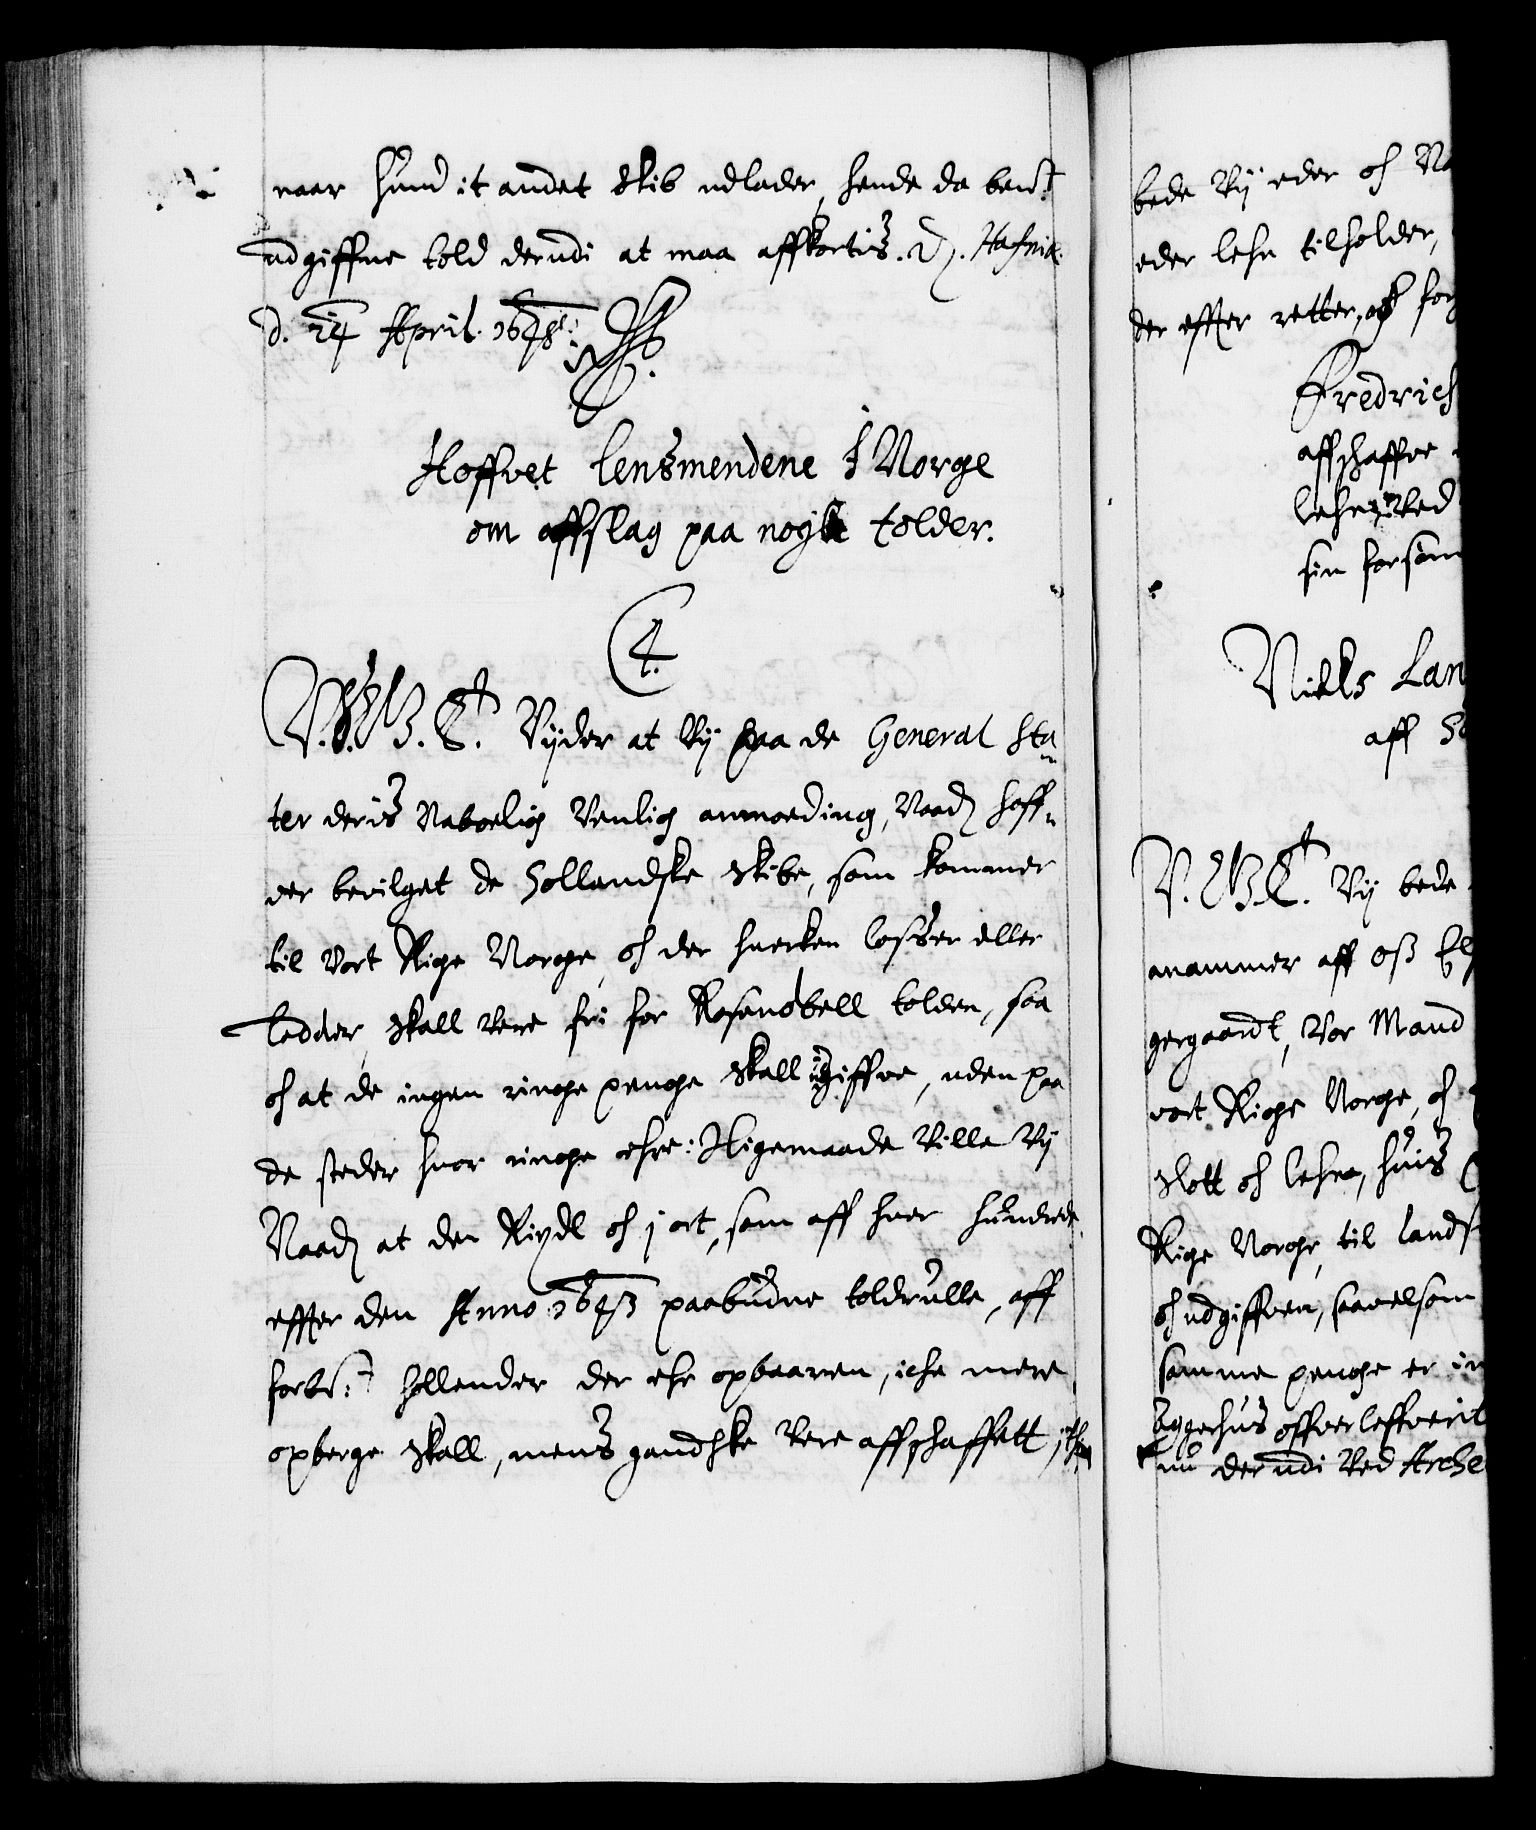 naar hund it andet skib udlader, hende da ben:t
udgiffne told derudi at maa affkortis. D. Hafniæ
d. 24 April. 1648:
Hoffvet lensmendene i Norge
om affslag paa nogle tolder.
4.
V. G. T. Vijder at Vij paa de General Sta-
ter deris Naboelig Venlig anmoeding, Naad: haff-
ver bevilget de Hollandske skibe, som kommer
til Vort Rige Norge, och der huerken losser eller
ladder, skall Vere fri for Rosenobell tolden, saa
och at de ingen ringe penge skall udgiffve, uden paa
de steder huor ringe ehre: Ligemaade Ville Vij
Naad: at den Rixdl och j ort, som aff huer hundrede
effter den Anno 1643 paabudne toldrulle, aff
forbe:t hollender der ehr opbaaren, iche mere
opberge skall, mens gandske Vere affschaffett
bede Vij eder och
eder lehn tilholder,
der effter retter, och
Fredrich
affschaffve
lehn Ved
sin
Niels Lan
aff
V. G. T. Vij bede
anammer aff oss
gergaardt, Vor Mand
vort Rige Norge, och
slott och lehn, huis
Rige Norge, til lands
och udgiffven, saavelsom
samme penge er in
Aggerhus offverleffverit
nu derudi Ved Arche